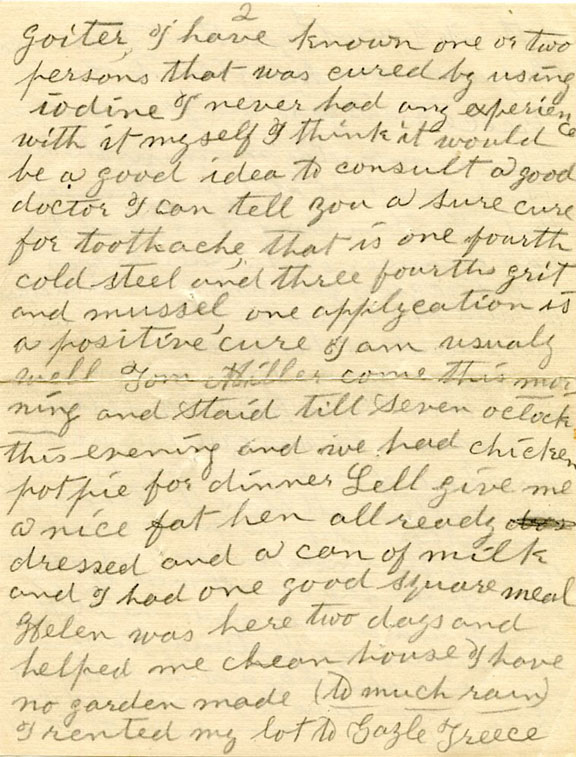 2
goiter, I have known one or two
persons that was cured by using
iodine I never had any experience
with it myself I think it would
be a good idea to consult a good
doctor I can tell you a sure cure
for toothache, that is one fourth
cold steel and three fourths grit
and mussel, one applycation is
a positive cure I am usualy
well Tom Miller come this mor
ning and staid till seven oclock
this evening and we had chicken
potpie for dinner Lell give me
a nice fat hen all ready
dressed and a can of milk
and I had one good square meal
Helen was here two days and
helped me clean house I have
no garden made (to much rain)
I rented my lot to Greece